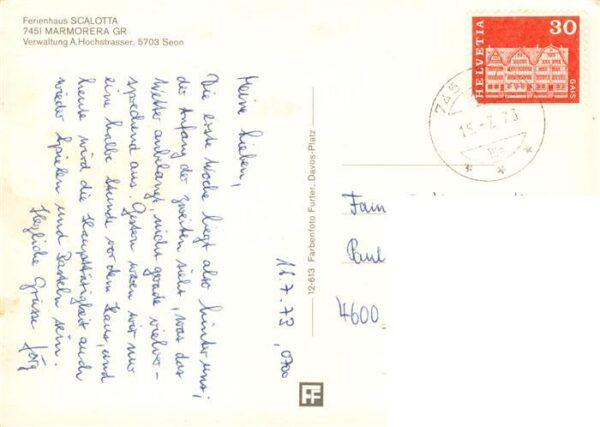 Ferienhaus SCALOTTA
7451 MARMORERA GR
Verwaltung A. Hochstrasser, 5703 Seon
HELVETIA
30
GAIS
745
15.-7.73
Meine Lieben,
Die erste Woche liegt also hinter uns;
der Anfang der zweiten sieht, was das
Wetter anbelangt, nicht gerade vielver-
sprechend aus. Gestern waren wir nur
eine halbe Stunde vor dem Haus, und
heute wird die Haupttätigkeit auch
wieder Spielen und Basteln sein.
Herzliche Grüsse Jörg
16.7.73, 0700
12-613 Farbenfoto Furter, Davos-Platz
FF
Fam
Paul
4600